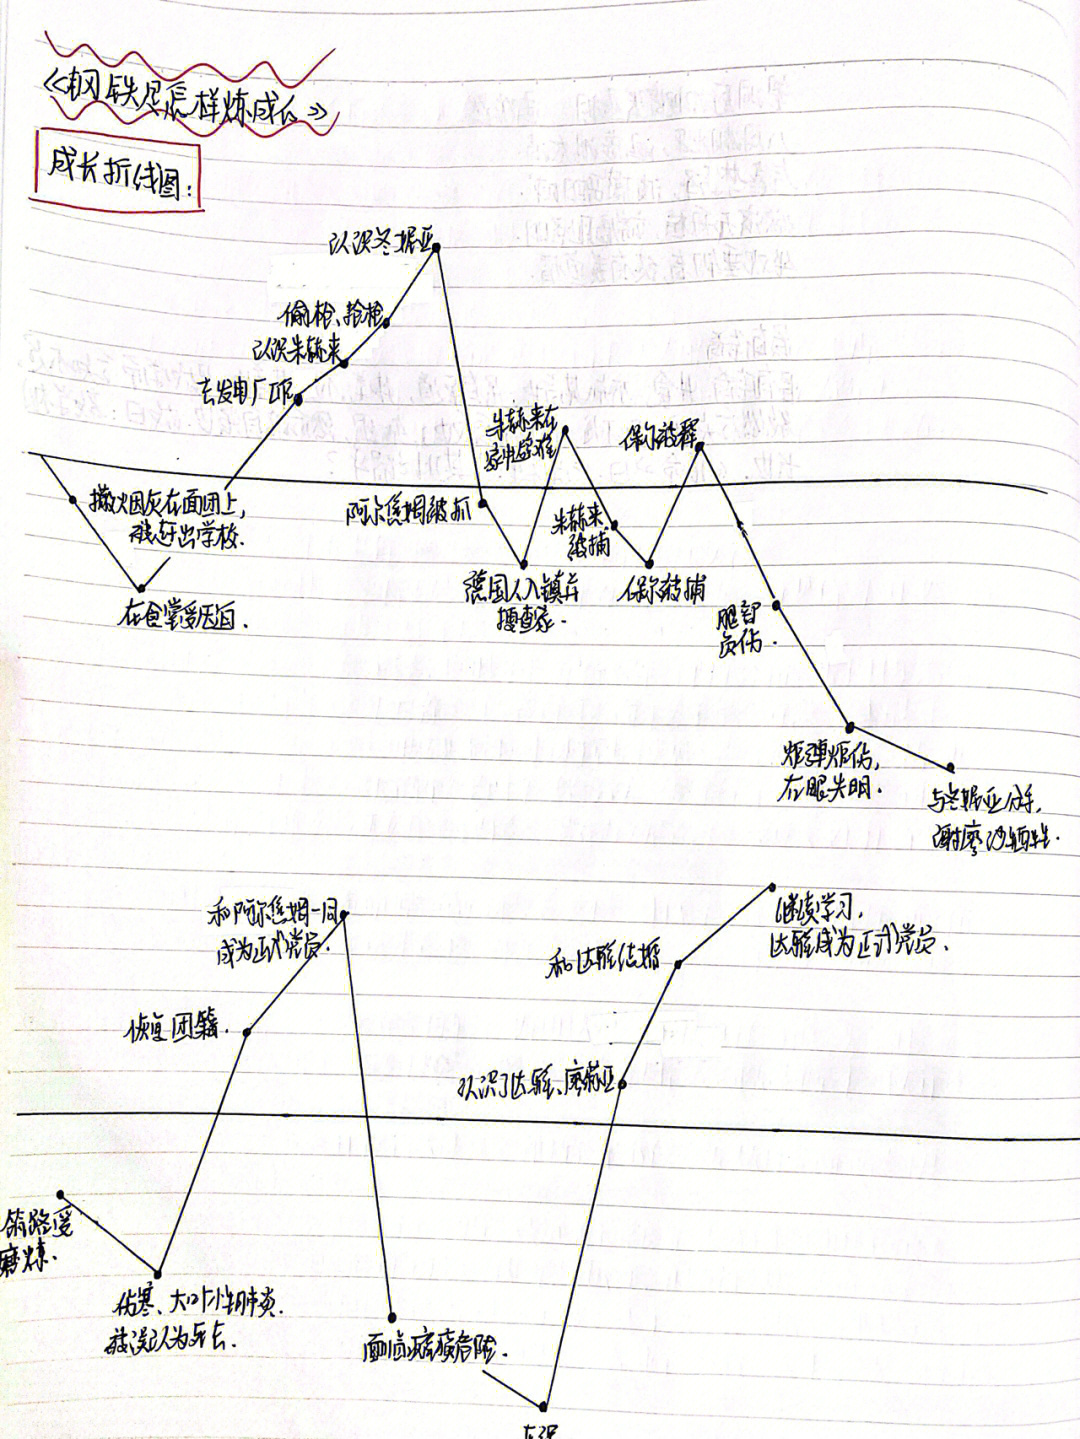 《钢铁是怎样炼成的》
成长折线图：
认识冬妮亚
偷枪、抢枪
认识朱赫来
去发电厂工作
撒烟灰在面团上，
被赶出学校.
在食堂受凌辱.
阿尔焦姆被抓
德国人入镇并
搜查家.
朱赫来在
家中避难
朱赫来
被捕
保尔被捕
保尔被释
腿部
负伤.
炮弹炸伤，
右眼失明.
与冬妮亚分手，
谢廖沙牺牲.
筑路受
磨炼.
伤寒、大叶性肺炎.
被误认为死亡.
恢复团籍.
和阿尔焦姆一同
成为正式党员.
面临瘫痪危险.
认识了达雅、廖莉亚
和达雅结婚
继续学习，
达雅成为正式党员.